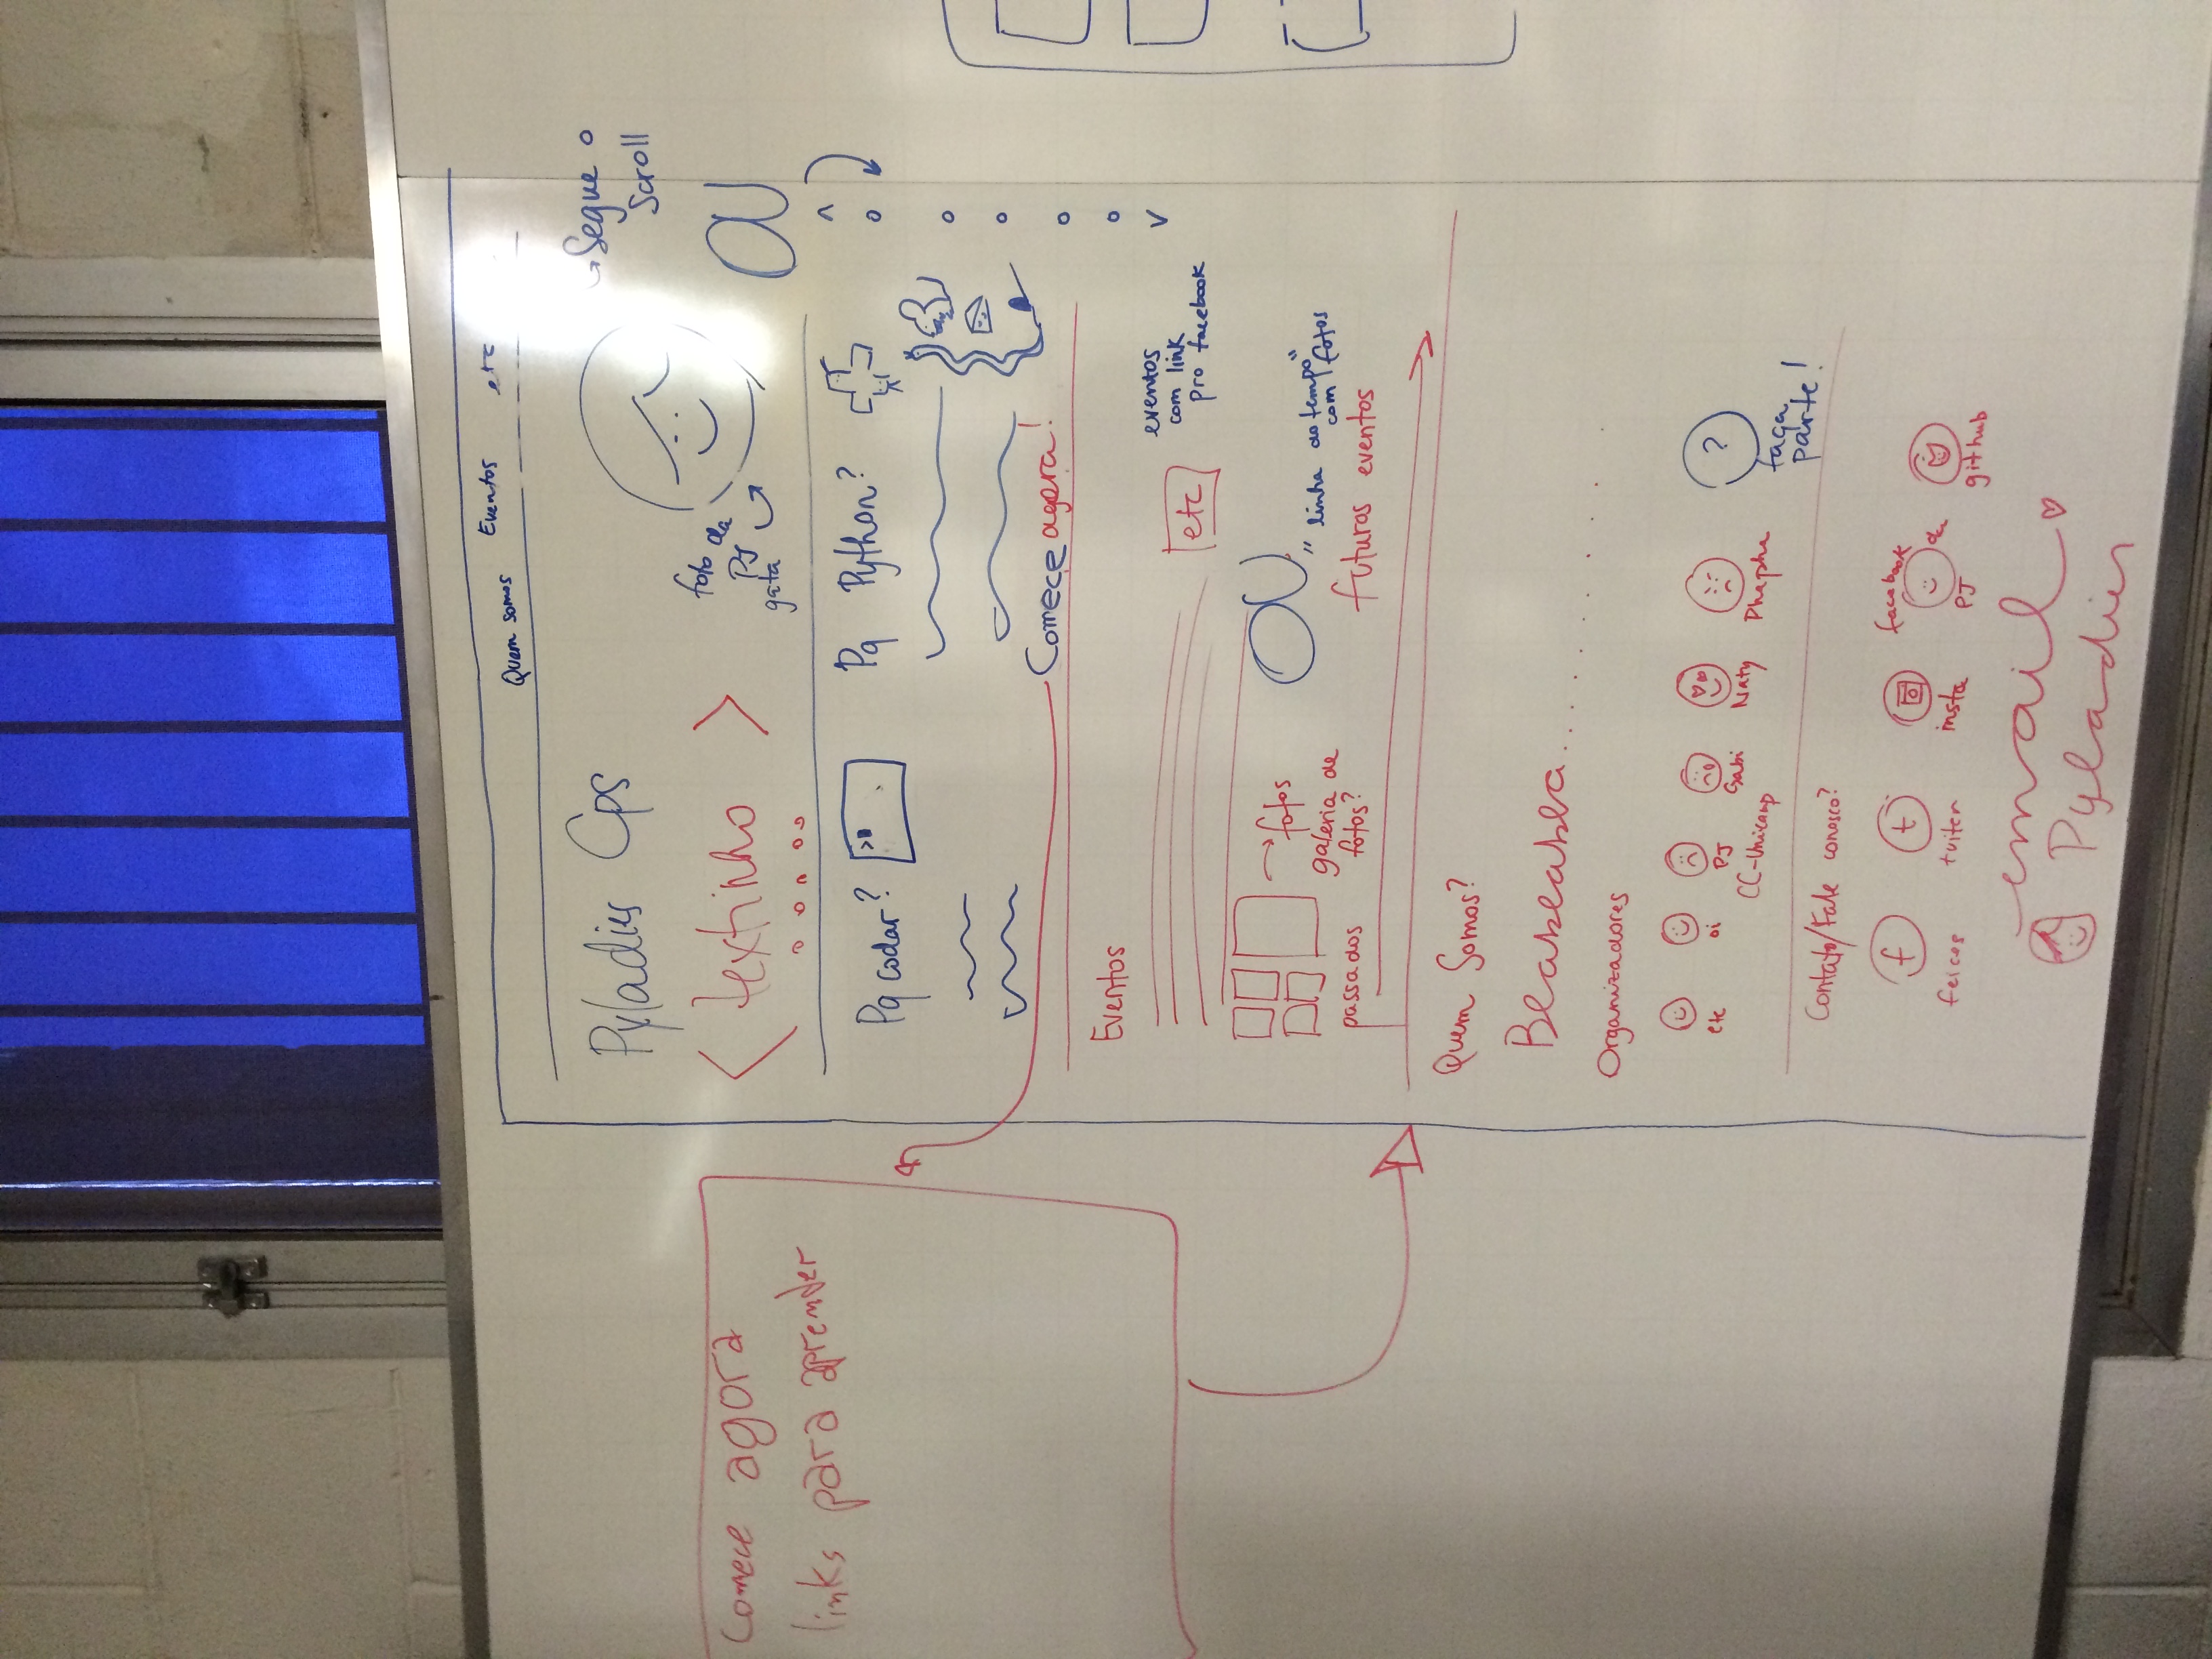 Quem somos
Eventos
etc
Pyladies Cps
< textinho >
foto da
PJ
gata
Segue o
scroll
OU
Comece agora
links para aprender
Pq codar?
>
Pq Python?
Comece agora!
Eventos
etc
eventos
com link
pro facebook
fotos
galeria de
fotos?
passados
OU
"linha do tempo"
com fotos
futuros eventos
Quem Somos?
Blablabla............
Organizadores
etc
oi
PJ
CC-Unicamp
Gabi
Naty
Phapha
?
faça
parte!
Contato/Fale conosco?
f
feices
t
tuiter
insta
facebook
da
PJ
github
email
Pyladies